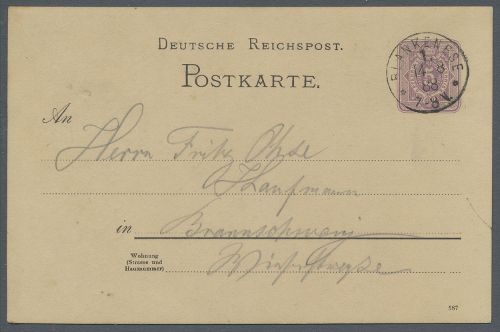 DEUTSCHE REICHSPOST.
POSTKARTE.
BLANKENESE
1.
14 8
88
7-8V.
An
Herrn Fritz Ohde
Kaufmann
in Braunschweig
Wohnung
(Strasse und
Hausnummer)
587